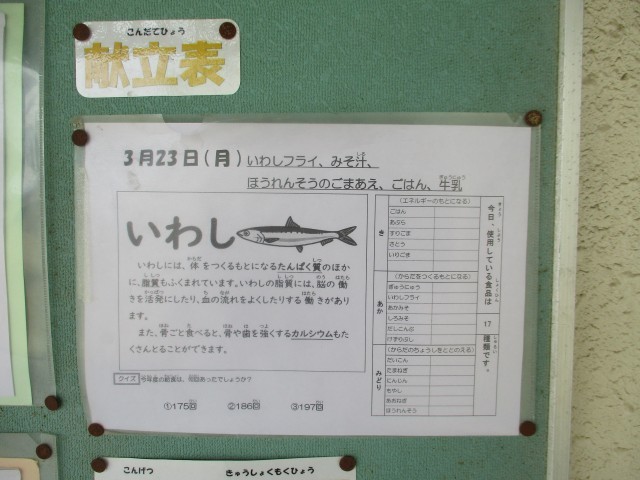 こんだてひょう
献立表
3月23日(月) いわしフライ、みそ汁、
ほうれんそうのごまあえ、ごはん、牛乳
いわし
いわしには、体をつくるもとになるたんぱく質のほか
に、脂質もふくまれています。いわしの脂質には、脳の働
きを活発にしたり、血の流れをよくしたりする働きがあり
ます。
また、骨ごと食べると、骨や歯を強くするカルシウムもた
くさんとることができます。
クイズ 今年度の給食は、何回あったでしょうか?
①175回 ②186回 ③197回
今日、使用している食品は 17 種類です。
き
(エネルギーのもとになる)
ごはん
あぶら
すりごま
さとう
いりごま
あか
(からだをつくるもとになる)
ぎゅうにゅう
いわしフライ
あかみそ
しろみそ
だしこんぶ
けずりぶし
みどり
(からだのちょうしをととのえる)
だいこん
たまねぎ
にんじん
もやし
あおねぎ
ほうれんそう
こんげつ きゅうしょくもくひょう